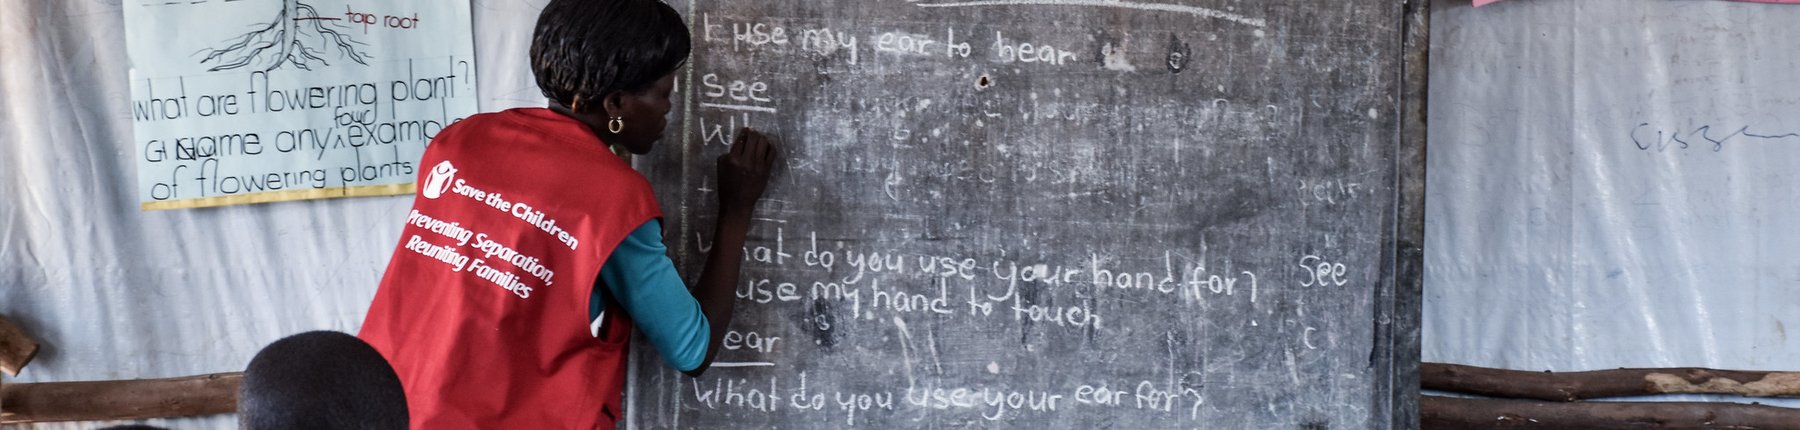 tap root
what are flowering plant?
G. Name any four example
of flowering plants
Save the Children
Preventing Separation,
Reuniting Families
I use my ear to hear
See
Wh
What do you use your hand for?
See
use my hand to touch
ear
What do you use your ear for?